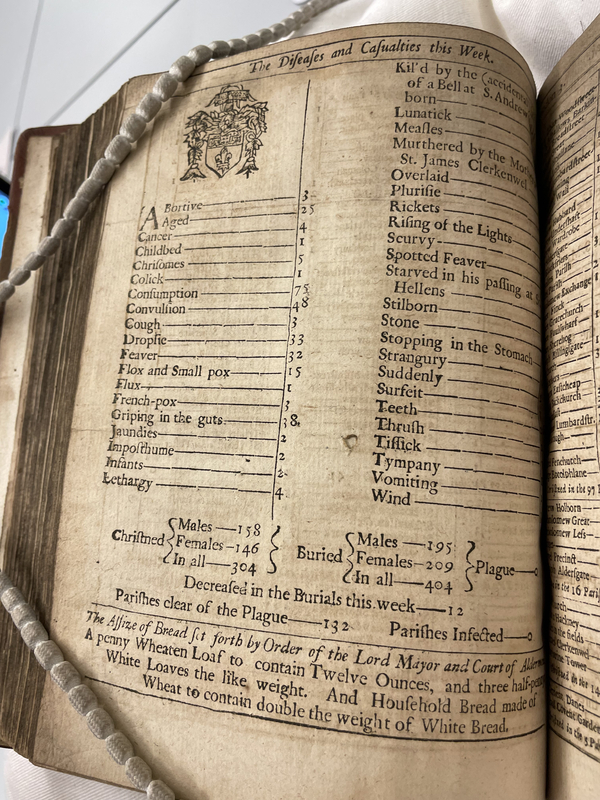 The Diſeaſes and Caſualties this Week.
ABortive 3
Aged 25
Cancer 4
Childbed 1
Chriſomes 5
Colick 1
Conſumption 75
Convulſion 48
Cough 3
Dropſie 33
Feaver 32
Flox and Small pox 15
Flux 1
French-pox 3
Griping in the guts 38
Jaundies 2
Impoſthume 2
Infants 2
Lethargy 4
Kil'd by the (accidental
of a Bell at S. Andrew
born
Lunatick
Meaſles
Murthered by the Moth
St. James Clerkenwel
Overlaid
Pluriſie
Rickets
Riſing of the Lights
Scurvy
Spotted Feaver
Starved in his paſſing at S
Hellens
Stilborn
Stone
Stopping in the Stomach
Strangury
Suddenly
Surfeit
Teeth
Thruſh
Tiſſick
Tympany
Vomiting
Wind
Chriſtned
Males—158
Females—146
In all—304
Buried
Males—195
Females—209
In all—404
Plague—0
Decreaſed in the Burials this week—12
Pariſhes clear of the Plague—132 Pariſhes Infected—0
The Aſſize of Bread ſet forth by Order of the Lord Mayor and Court of Alderm
A penny Wheaten Loaf to contain Twelve Ounces, and three half-penny
White Loaves the like weight. And Houſhold Bread made of
Wheat to contain double the weight of White Bread.